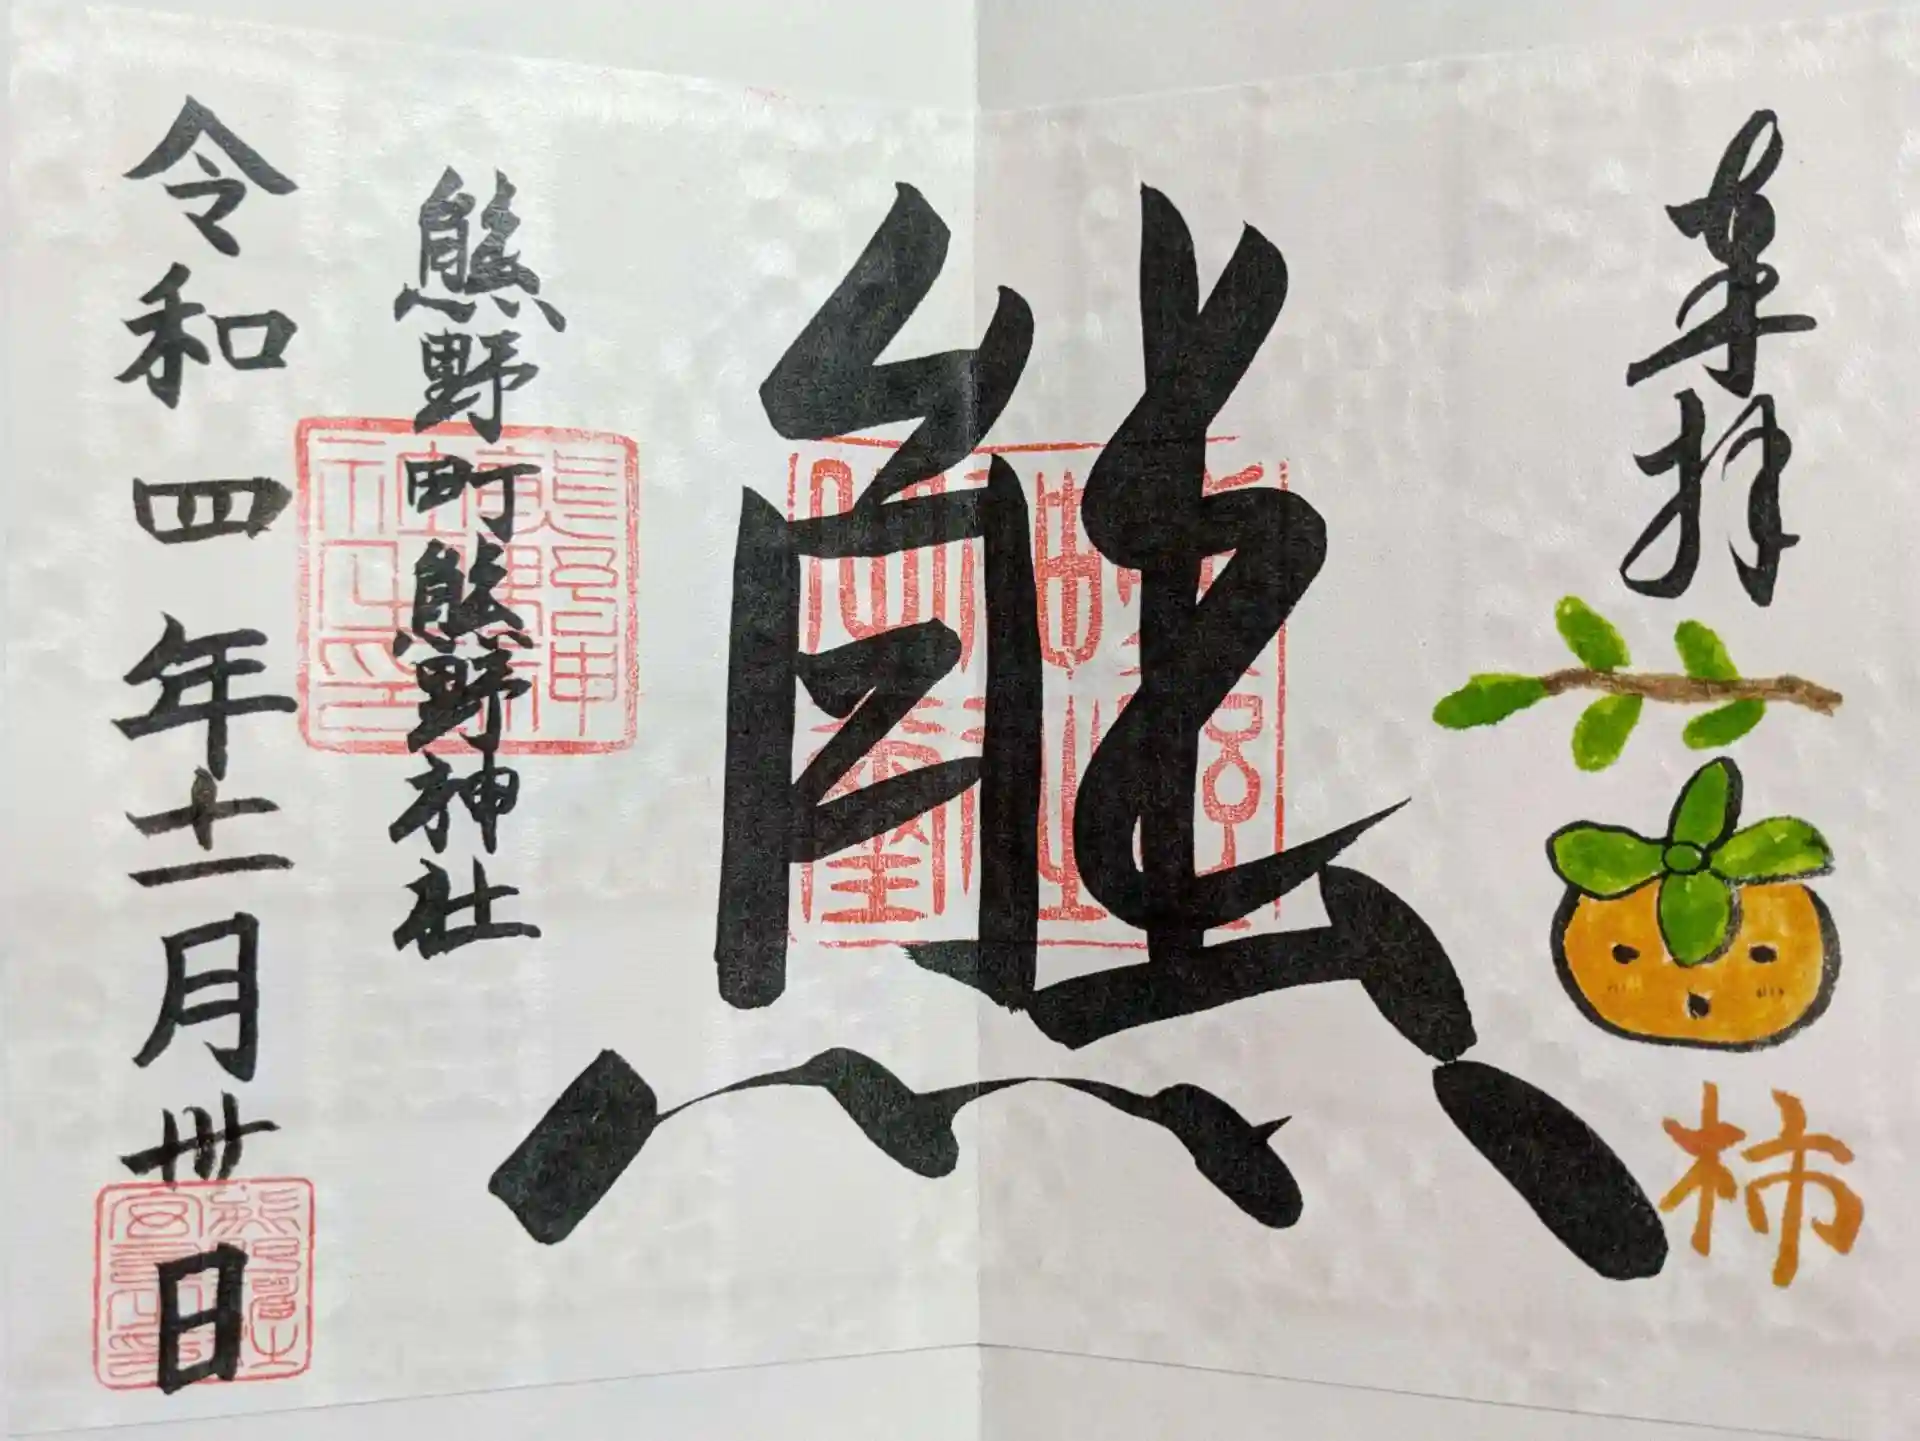 奉拝
柿
熊
熊野町熊野神社
令和四年十一月卅日